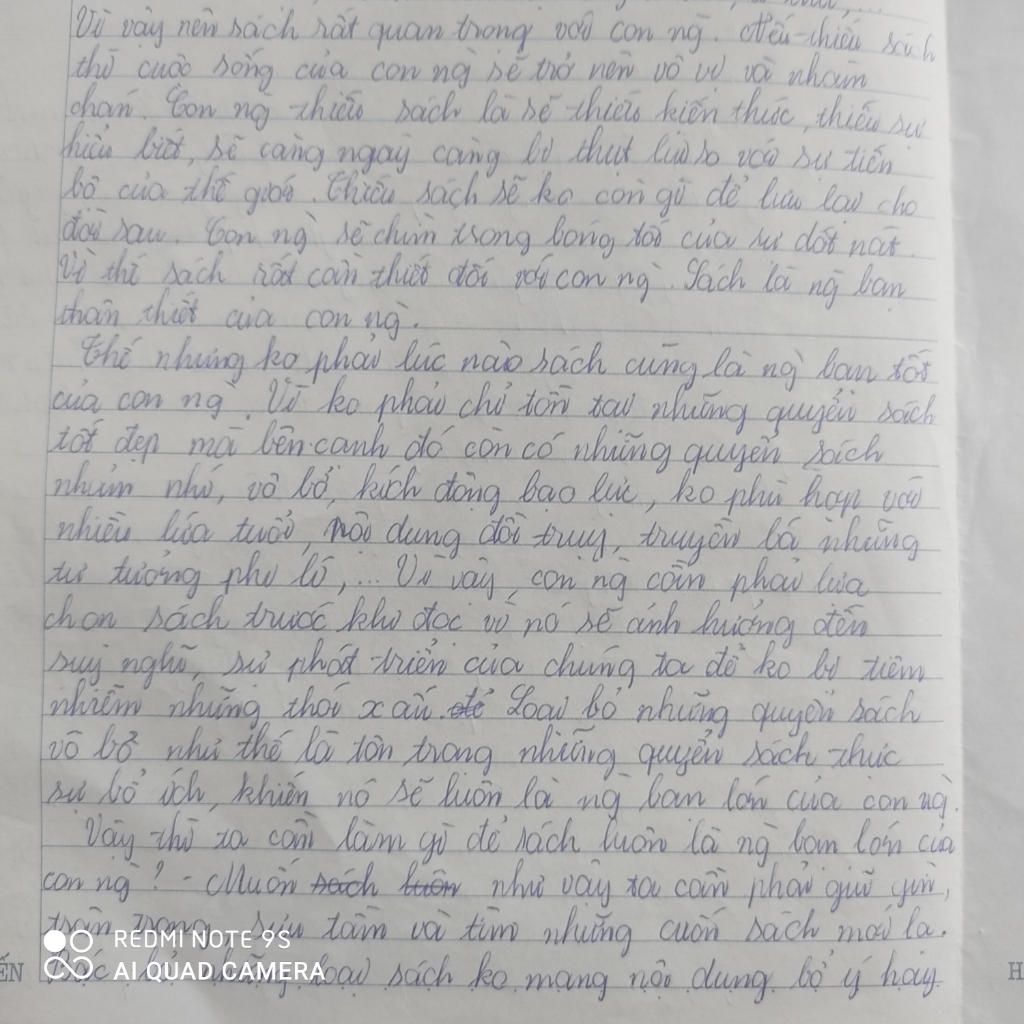 Vì vậy nên sách rất quan trọng với con ng. Nếu thiếu sách
thì cuộc sống của con ng sẽ trở nên vô vị và nhàm
chán. Con ng thiếu sách là sẽ thiếu kiến thức, thiếu sự
hiểu biết, sẽ càng ngày càng bị thụt lùi so với sự tiến
bộ của thế giới. Thiếu sách sẽ ko còn gì để lưu lại cho
đời sau. Con ng sẽ chìm trong bóng tối của sự dốt nát.
Vì thế sách rất cần thiết đối với con ng. Sách là ng bạn
thân thiết của con ng.
Thế nhưng ko phải lúc nào sách cũng là ng bạn tốt
của con ng. Vì ko phải chỉ tồn tại những quyển sách
tốt đẹp mà bên cạnh đó còn có những quyển sách
nhảm nhí, vô bổ, kích động bạo lực, ko phù hợp với
nhiều lứa tuổi, nội dung đồi truỵ, truyền bá những
tư tưởng phi lí,... Vì vậy, con ng cần phải lựa
chọn sách trước khi đọc vì nó sẽ ảnh hưởng đến
suy nghĩ, sự phát triển của chúng ta để ko bị tiêm
nhiễm những thói xấu. Loại bỏ những quyển sách
vô bổ như thế là tôn trọng những quyển sách thực
sự bổ ích, khiến nó sẽ luôn là ng bạn lớn của con ng.
Vậy thì ta cần làm gì để sách luôn là ng bạn lớn của
con ng? - Muốn như vậy ta cần phải giữ gìn,
trân trọng, sưu tầm và tìm những cuốn sách mới lạ.
loại sách ko mang nội dung bổ ý hay
REDMI NOTE 9S
AI QUAD CAMERA
ẾN
H